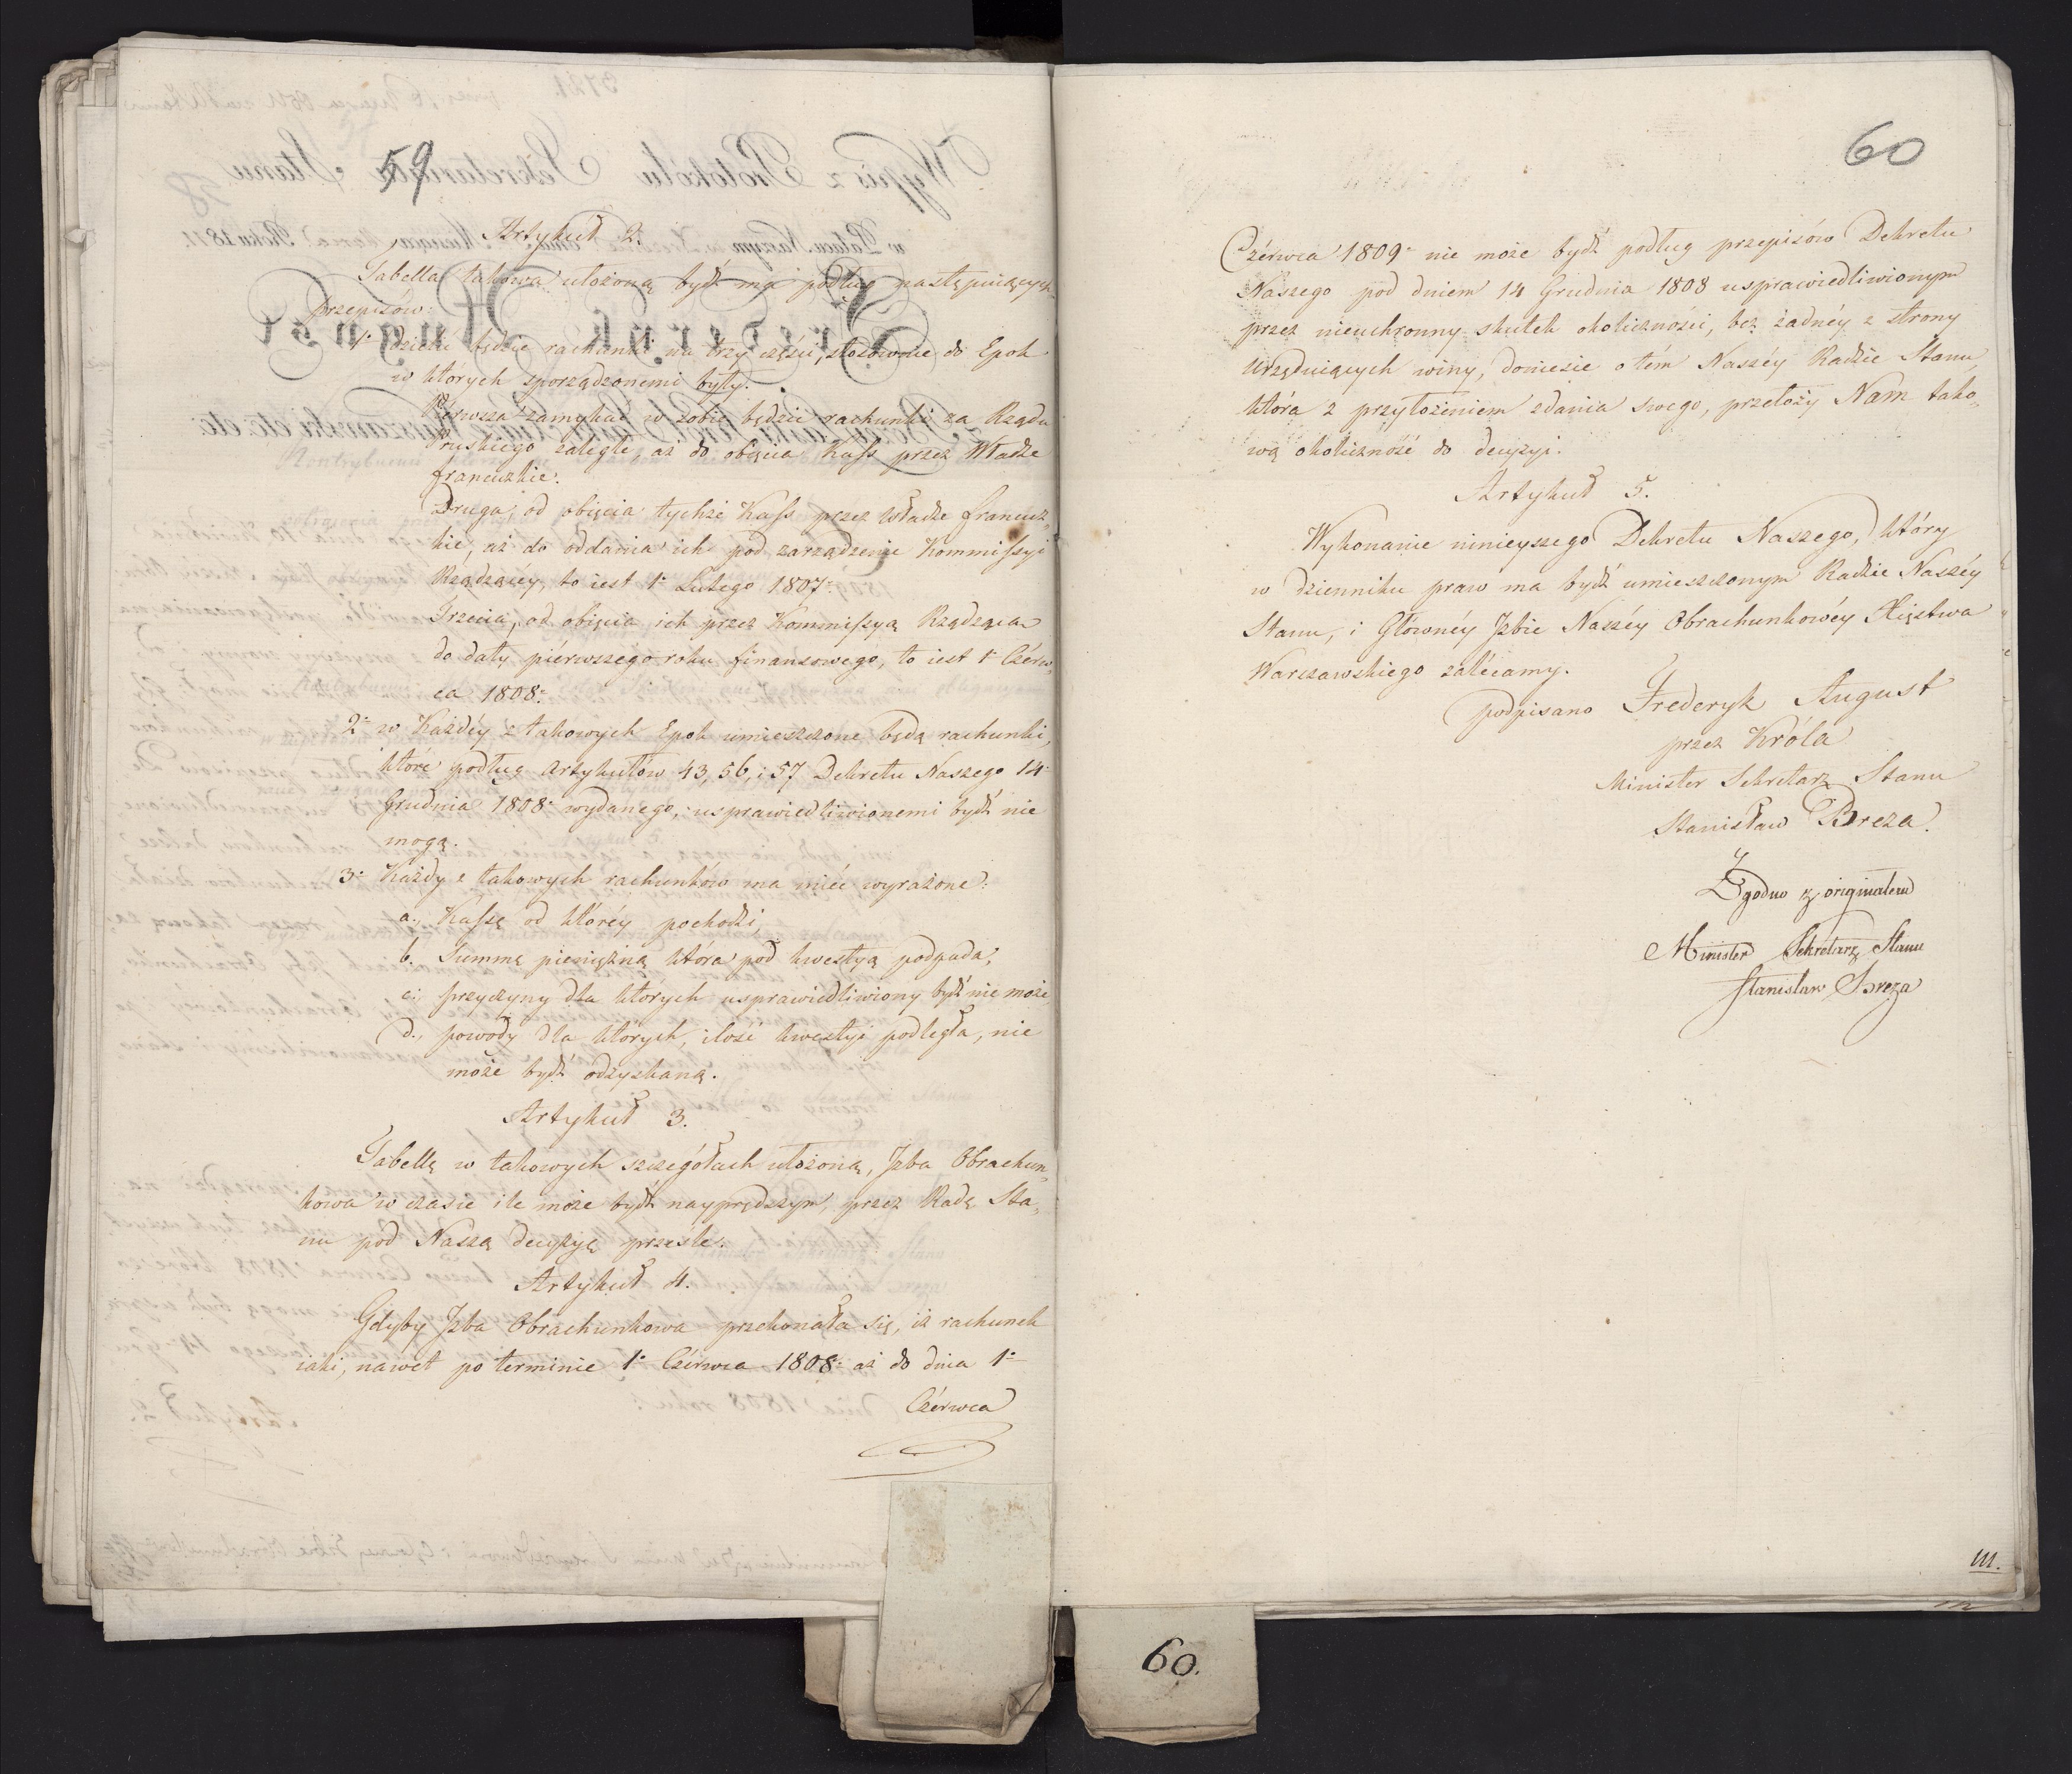 59
Artykuł 2.
Tabella takowa ułożoną bydź ma podług następuiących
przepisów:
1° dzielić będzie rachunki na trzy części, stosownie do Epok
w których sporządzonemi były.
Pierwsza zamykać w sobie będzie rachunki za Rządu
Pruskiego zaległe, aż do obięcia Kass przez Władze
francuzkie.
Druga, od obięcia tychże Kass przez Władze francuz„
kie, aż do oddania ich pod zarządzenie Kommissyi
Rządzącéy, to iest 1° Lutego 1807°
Trzecia, od obięcia ich przez Kommissyą Rządzącą
do daty piérwszego roku finansowego, to iest 1° Czérw„
ca 1808°
2° w Każdéy z takowych Epok umieszczone będą rachunki,
które podług Artykułów 43, 56, i 57 Dekretu Naszego 14°
Grudnia 1808° wydanego, usprawiedliwionemi bydź nie
mogą.
3° Każdy z takowych rachunków ma miéć wyrażone:
a. Kassę od któréy pochodzi,
b. Summę pieniężną która pod kwestyą podpada,
c. przyczyny dla których usprawiedliwiony bydź nie może
d. powody dla których, ilość kwestyi podległa, nie
może bydź odzyskaną.
Artykuł 3.
Tabellę w takowych szczegółach ułożoną, Jzba Obrachun„
kowa w czasie ile może bydź nayprędszym, przez Radę Sta„
nu pod Naszą decyzyą prześle.
Artykuł 4.
Gdyby Jzba Obrachunkowa przekonała się, iż rachunek
iaki, nawet po terminie 1° Czérwca 1808° aż do dnia 1°
Czérwca
60
Czérwca 1809° nie może bydź podług przepisów Dekretu
Naszego pod dniem 14 Grudnia 1808 usprawiedliwionym
przez nieuchronny skutek okoliczności, bez żadnéy z strony
Urzęduiących winy, doniesie o tém Naszéy Radzie Stanu,
która z przyłożeniem zdania swego, przełoży Nam tako„
wą okoliczność do decyzyi.
Artykuł 5.
Wykonanie ninieyszego Dekretu Naszego, który
w dzienniku praw ma bydź umieszczonym Radzie Naszéy
Stanu, i Głównéy Jzbie Naszéy Obrachunkowéy Xięstwa
Warszawskiego zalécamy.
podpisano Frederyk August
przez Króla
Minister Sekretarz Stanu
Stanisław Breza.
Zgodno z originałem
Minister Sekretarz Stanu
Stanisław Breza
111.
60.